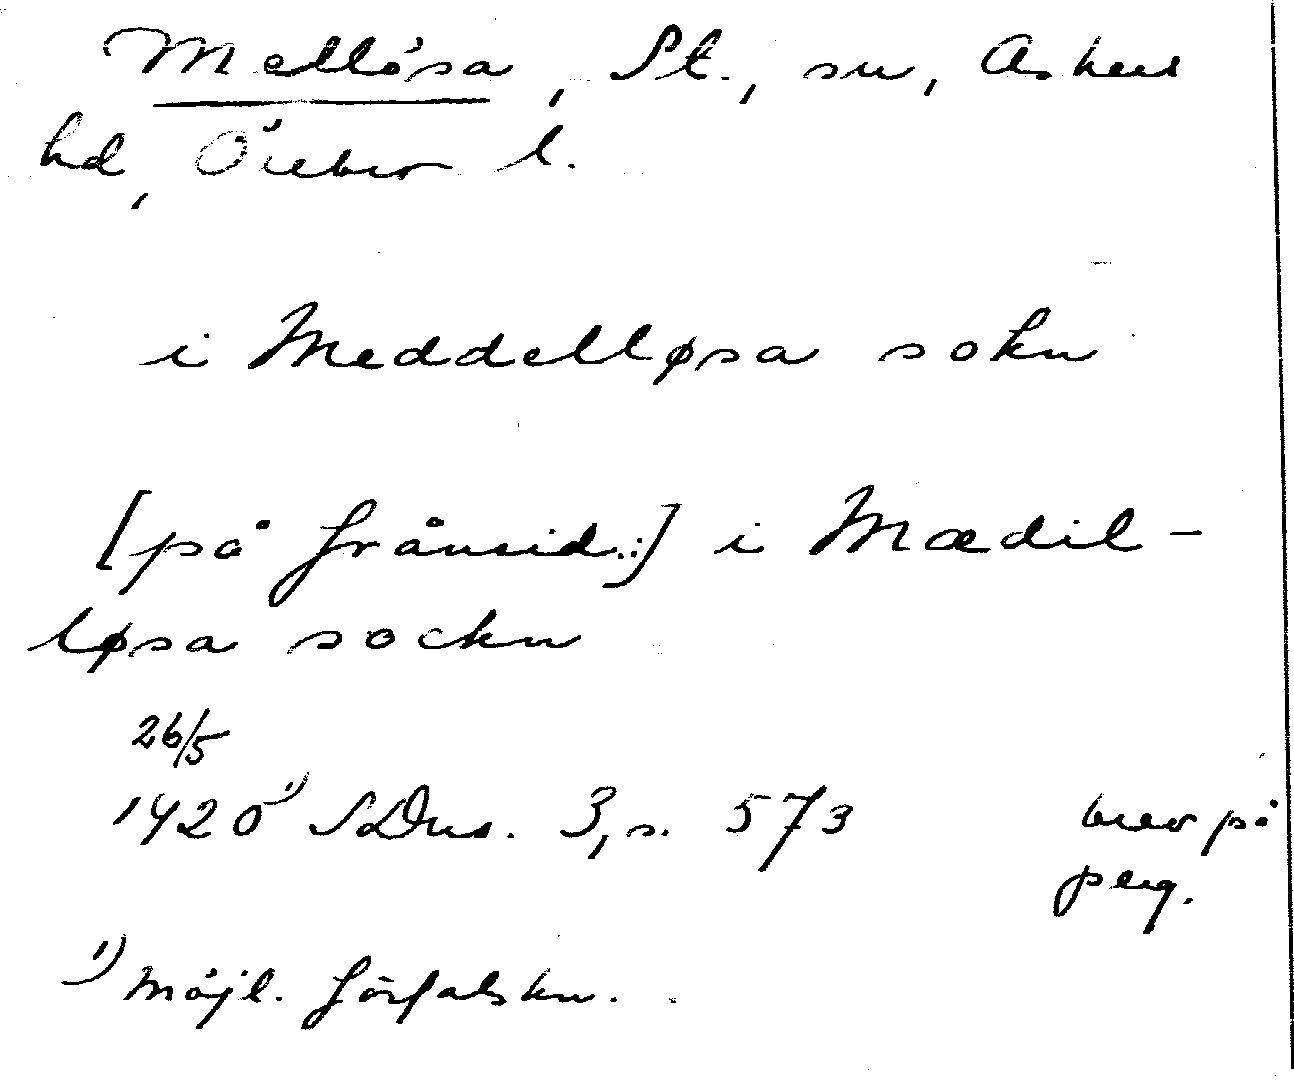 Mellösa, St., sn, Askers
hd, Örebro l.
i Meddelløsa sokn
[på frånsid.:] i Mædil-
løsa sockn
26/5
1420 1) SDns. 3, s. 573 brev på
perg.
1) Möjl. förfalskn.